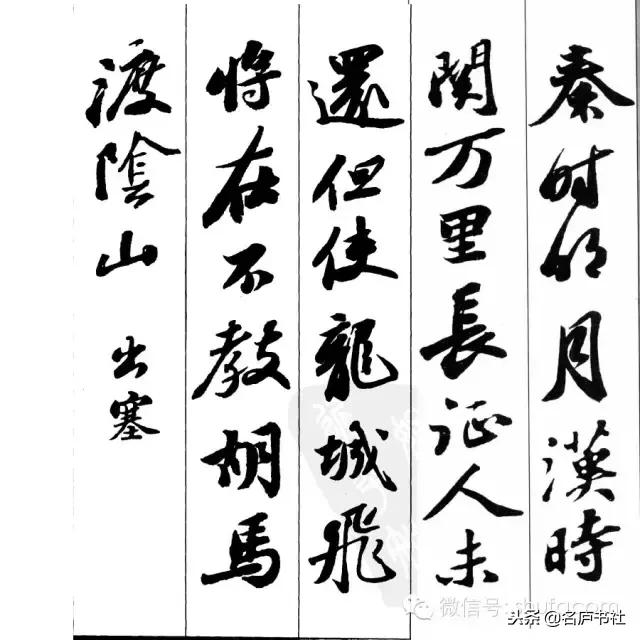 秦时明月漢時
関万里長征人未
還但使龍城飛
将在不教胡馬
渡陰山 出塞
微信号:
头条 @名庐书社